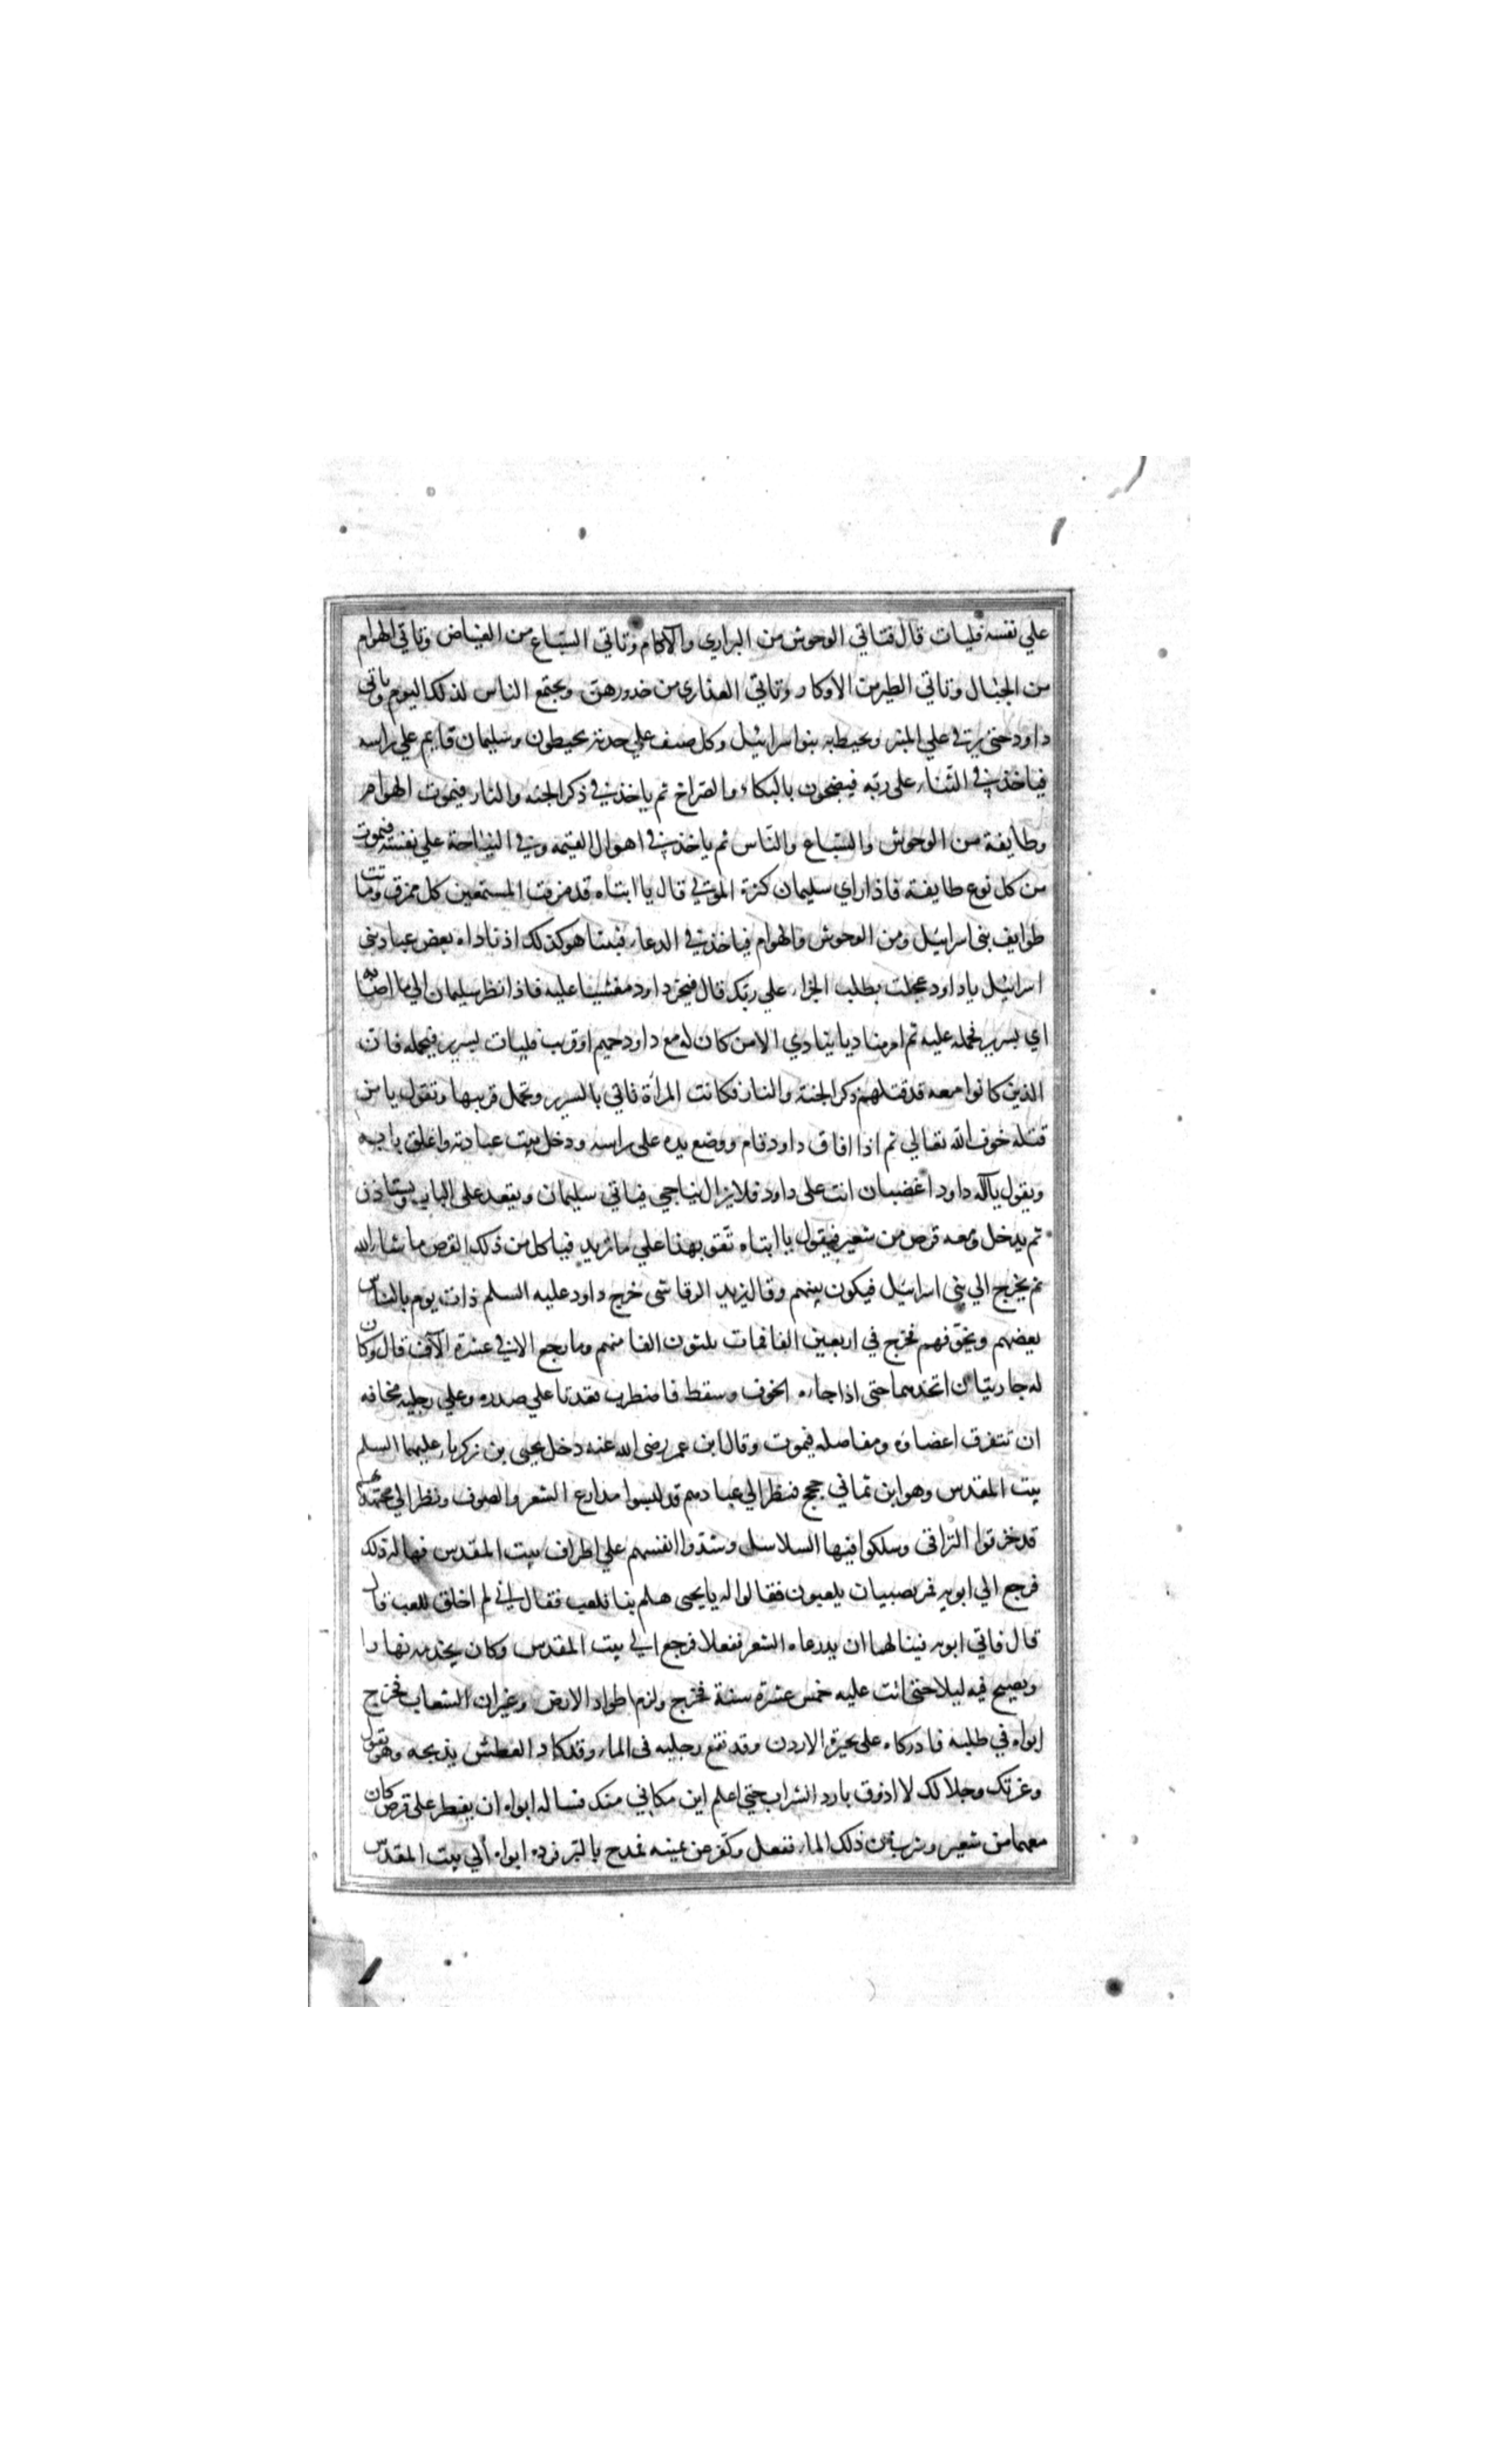 علي نفسه فليات قال فتاتي الوحوش من البراري والاكام وتاتي السباع من الغياض وتاتي الهوام
من الجبال وتاتي الطير من الاوكار وتاتي العذاري من خدورهن ويجتمع الناس لذلك اليوم وياتي
داود حتي يرقي علي المنبر ويحيط به بنو اسرائيل وكل صنف علي حدته يحيطون وسليمان قايم علي راسه
فياخذ في الثناء علي ربه فيضجون بالبكاء والصراخ ثم ياخذ في ذكر الجنه والنار فيموت الهوام
وطايفة من الوحوش والسباع والناس ثم ياخذ في اهوال القيمة وفي النياحة علي نفسه فيموت
من كل نوع طايفة فاذا راي سليمان كثرة الموتي قال يا ابتاه قد مزقت المستمعين كل ممزق وماتت
طوايف بني اسرائيل ومن الوحوش والهوام فياخذ في الدعاء فبينا هو كذلك اذ ناداه بعض عباد بني
اسرائيل ياداود عجلت بطلب الجزاء علي ربك قال فيخر داود مغشيا عليه فاذا نظر سليمان الي ما اصابه
اتي بسرير فحمله عليه ثم امر مناديا ينادي الا من كان له مع داود حميم او قريب فليات بسرير فيحمله فان
الذين كانوا معه قد قتلهم ذكر الجنة والنار فكانت المرأة تاتي بالسرير وتحمل قريبها وتقول يا من
قتله خوف الله تعالي ثم اذا افاق داود قام ووضع يده علي راسه ودخل بيت عبادته واغلق بابه
ويقول يآله داود اغضبان انت علي داود فلا يزال يناجي فياتي سليمان ويقعد علي الباب ويستاذن
ثم يدخل ومعه قرص من شعير فيقول يا ابتاه تقو بهذا علي ما تريد فياكل من ذلك القرص ما شاء الله
ثم يخرج الي بني اسرائيل فيكون بينهم وقال يزيد الرقاشي خرج داود عليه السلم ذات يوم بالناس
يعضهم ويخوفهم فخرج في اربعين الفا فمات ثلثون الفا منهم وما رجع الا في عشرة الآف قال وكان
له جاريتان اتخذهما حتي اذا جاءه الخوف وسقط فاضطرب قعدتا علي صدره وعلي رجليه مخافه
ان تتفرق اعضاؤه ومفاصله فيموت وقال ابن عمر رضي الله عنه دخل يحيي بن زكرياء عليهما السلم
بيت المقدس وهو ابن ثماني حجج فنظر الي عبادهم قد لبسوا مدارع الشعر والصوف ونظر الي مجتهديهم
قد خرقوا التراقي وسلكوا فيها السلاسل وشدوا انفسهم علي اطراف بيت المقدس فهاله ذلك
فرجع الي ابويه فمر بصبيان يلعبون فقالوا له يا يحيي هلم بنا نلعب فقال اني لم اخلق للعب قال
قال فاتي ابويه فسالهما ان يدرعاه الشعر ففعلا فرجع الي بيت المقدس وكان يخدمه نهارا
ويصيح فيه ليلا حتي اتت عليه خمس عشرة سنة فخرج ولزم اطواد الارض وغيران الشعاب فخرج
ابواه في طلبه فادركاه علي بحيرة الاردن وقد نقع رجليه في الماء وقد كاد العطش يذبحه وهو يقول
وعزتك وجلالك لا اذوق بارد الشراب حتي اعلم اين مكاني منك فساله ابواه ان يفطر علي قرص كان
معهما من شعير ويشرب من ذلك الماء ففعل وكفر عن يمينه فمدح بالبر فرده ابواه الي بيت المقدس